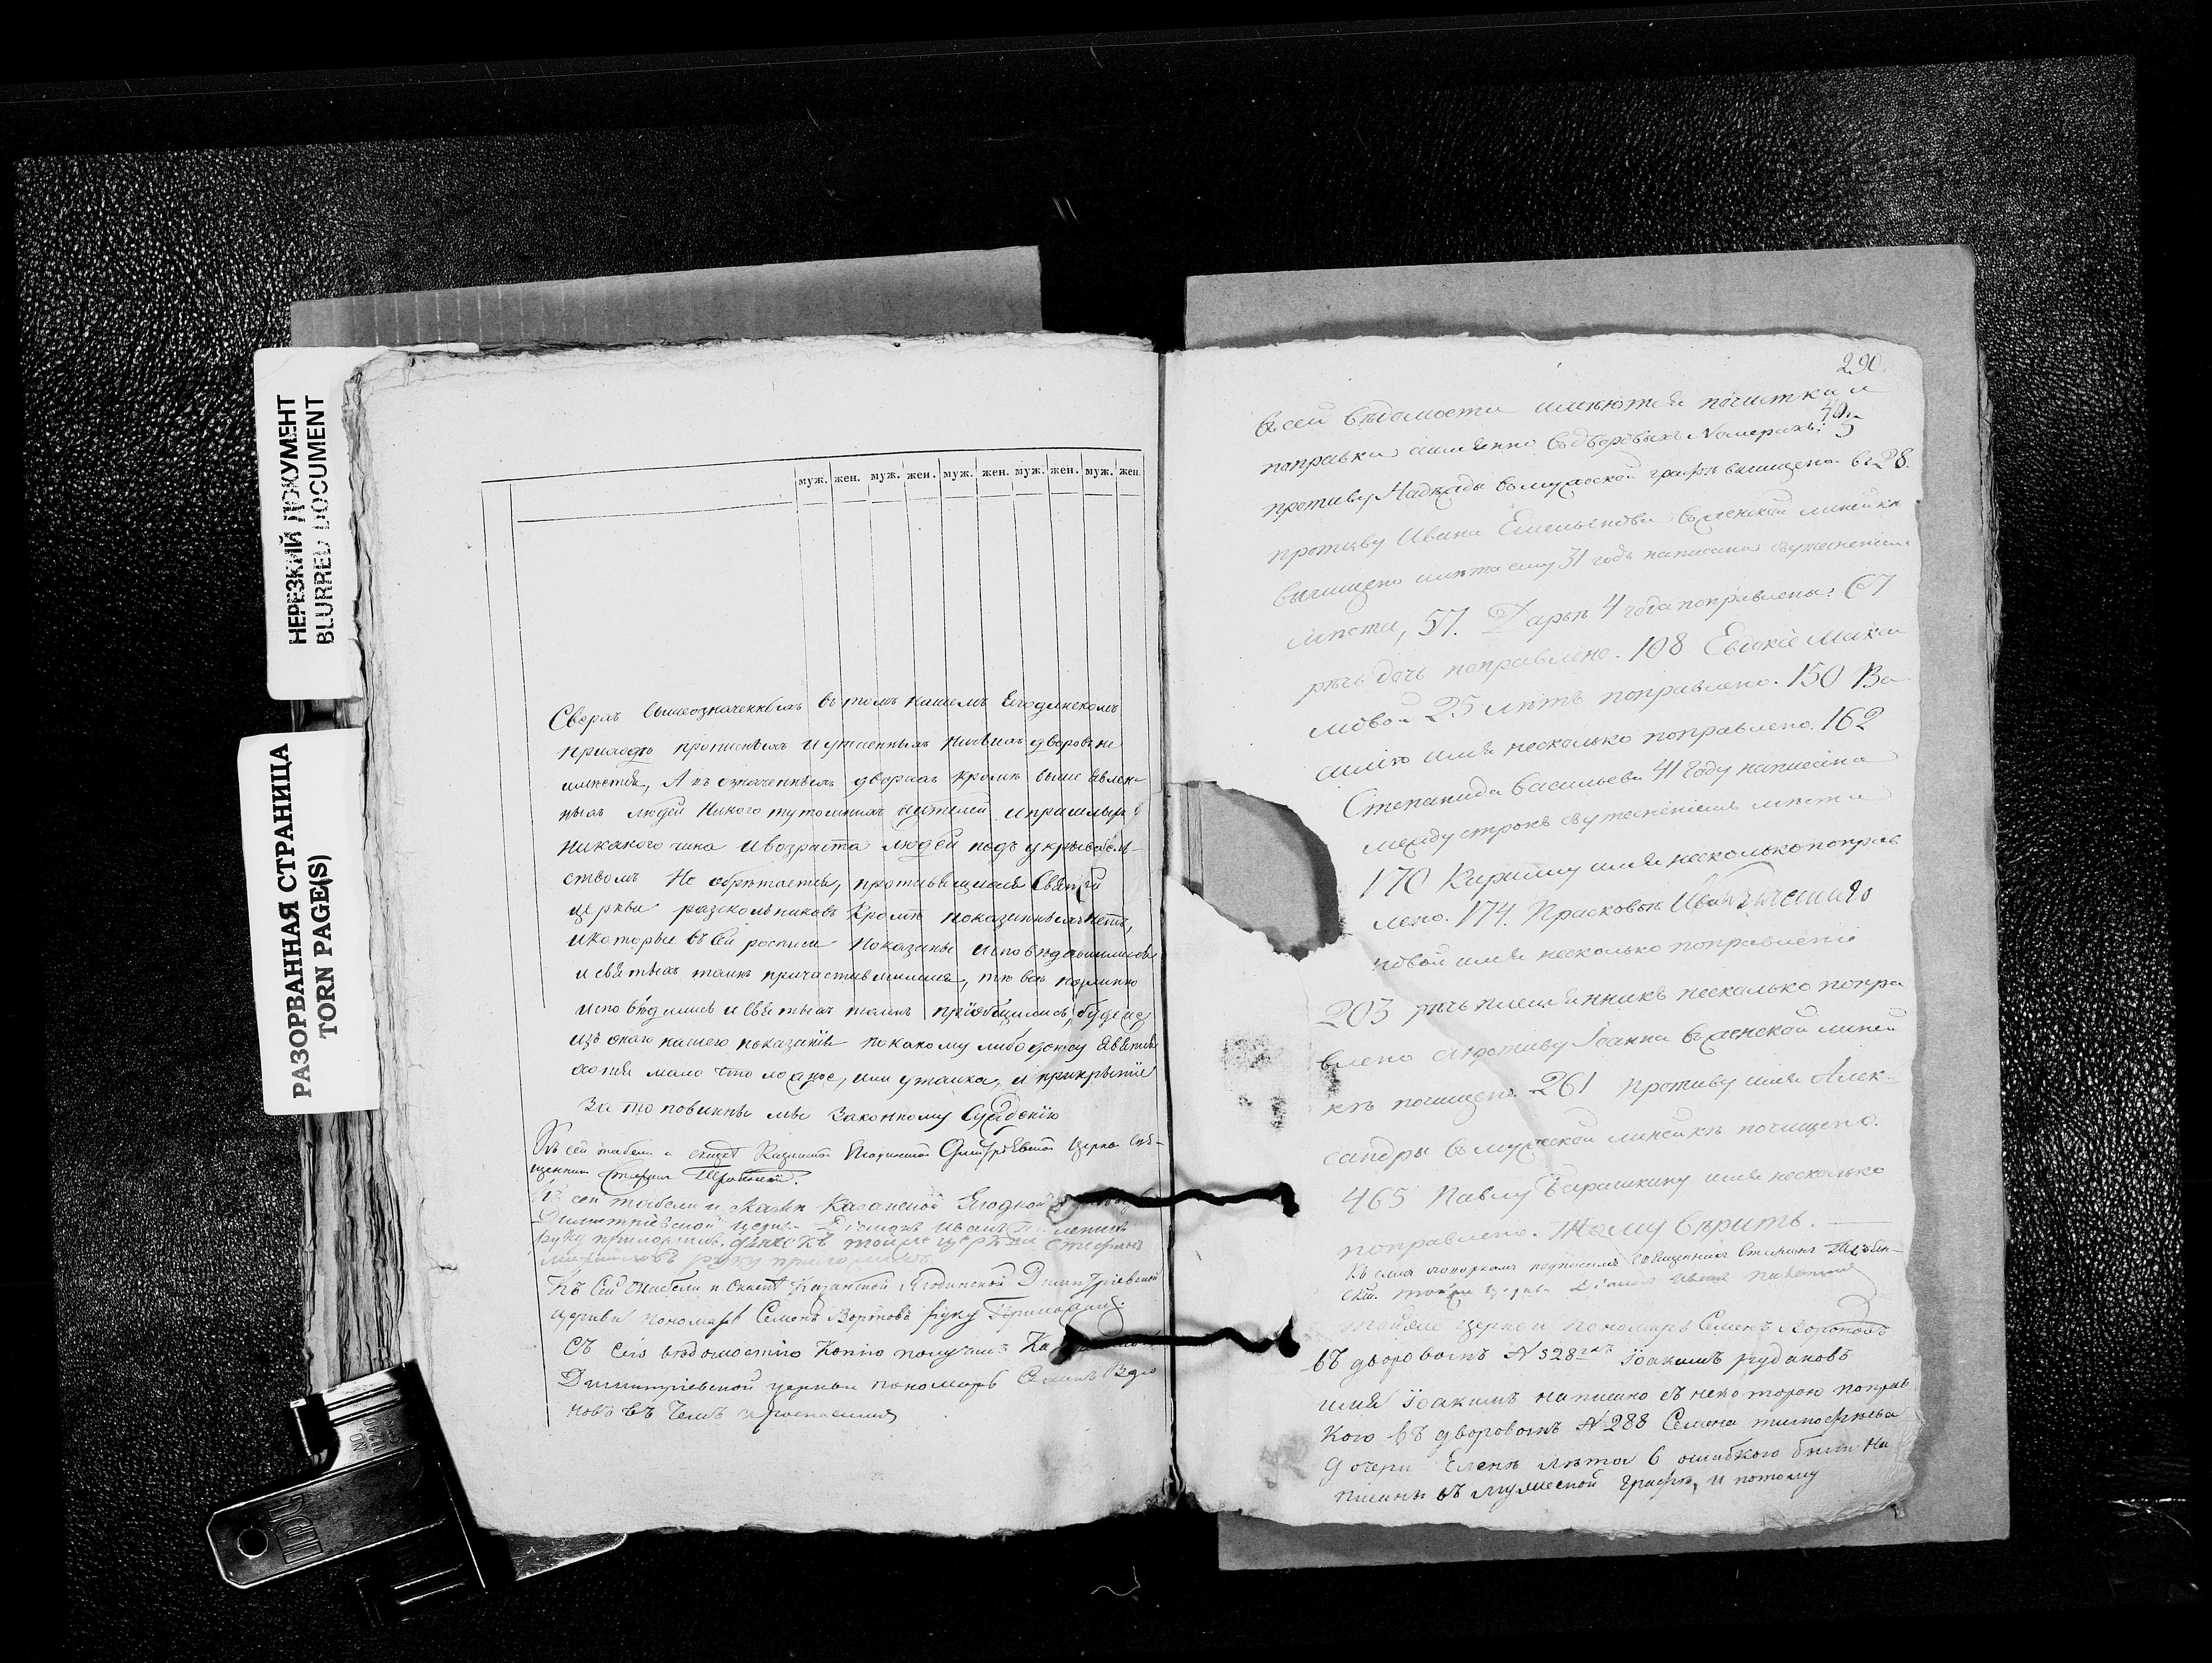 НЕРЕЗКИЙ ДОКУМЕНТ
BLURRED DOCUMENT
РАЗОРВАННАЯ СТРАНИЦА
TORN PAGE(S)
муж. жен. муж. жен. муж. жен. муж. жен. муж. жен.
Сверхъ вышеозначенныхъ въ томъ нашемъ Ягодинскомъ
приходѣ прописныхъ и утаенныхъ ничьихъ дворовъ не
имѣется, А въ означенныхъ дворахъ кромѣ выше явлен-
ныхъ людей никого тутошнихъ жителей и пришлыхъ
никакого чина и возраста людей подъ укрыватель-
ствомъ не обрѣтается, противящихся Святѣй
церкви раскольниковъ кромѣ показанныхъ нетъ,
и которые въ сей росписи показаны исповѣдавшимися
и святыхъ таинъ причастившимися, тѣ все подлинно
исповѣдались и святыхъ таинъ приобщились, буде же
изъ онаго нашего показанія по какому либо доносу явится
хотя мало что ложное, или утайка, и прикрытіе
за то повинны мы законному сужденію
Къ сей табели и сказкѣ Казанской Ягодинской Димитріевской церкви свя-
щенникъ Стефанъ
Къ сей табели и сказкѣ Казанской Ягодной
Димитріевской церкви Діаконъ Иванъ
руку приложилъ. дьячекъ той же церкви Стефанъ
руку приложилъ
Къ сей табели и сказкѣ Казанской Ягодинской Димитріевской
церкви пономарь Семенъ Вороновъ руку приложилъ.
Съ сею вѣдомостію копію получилъ
Димитріевской церкви пономарь Семенъ Воро
новъ въ чемъ и росписался
290
въ сей вѣдомости имѣются почистки и
поправки а именно въ дворовыхъ Номерахъ:
противу Надежды въ мужеской графѣ вычищено въ 28.
противу Ивана Емельянова въ женской линейкѣ
вычищено и лѣта ему 31 годъ написана съ утесненіемъ
мѣста, 57. Дарьѣ 4 года поправлены: 67
рѣчь дочь поправлено. 108 Евдокіе Макси
мовой 25 лѣтъ поправлено. 150 Ва
силію имя несколько поправлено. 162
Степанида Васильева 41 году написана
между строкъ съ утесненіемъ мѣста
170 Кирилу имя несколько поправ
лено. 174. Прасковьѣ
човой имя несколько поправлено
203 рѣчь племянникъ несколько попра
влено а противу Іоанна въ женской линей
кѣ почищено. 261 противу имя Алек-
сандры въ мужеской линейкѣ почищено.
465 Павлу Барашкину имя несколько
поправлено. Тому вѣрить.
Къ симъ оговоркамъ подписался священникъ Стефанъ
той же церкви Діаконъ Иванъ
той же церкви пономарь Семенъ Вороновъ
въ дворовомъ № 328 Іоакимъ рудаковъ
имя Іоакимъ написано съ некоторою поправ
кою въ дворовомъ № 288 Семена тимофѣева
дочери Еленѣ лѣта 6 ошибкою были на
писаны въ мужеской графѣ, и потому